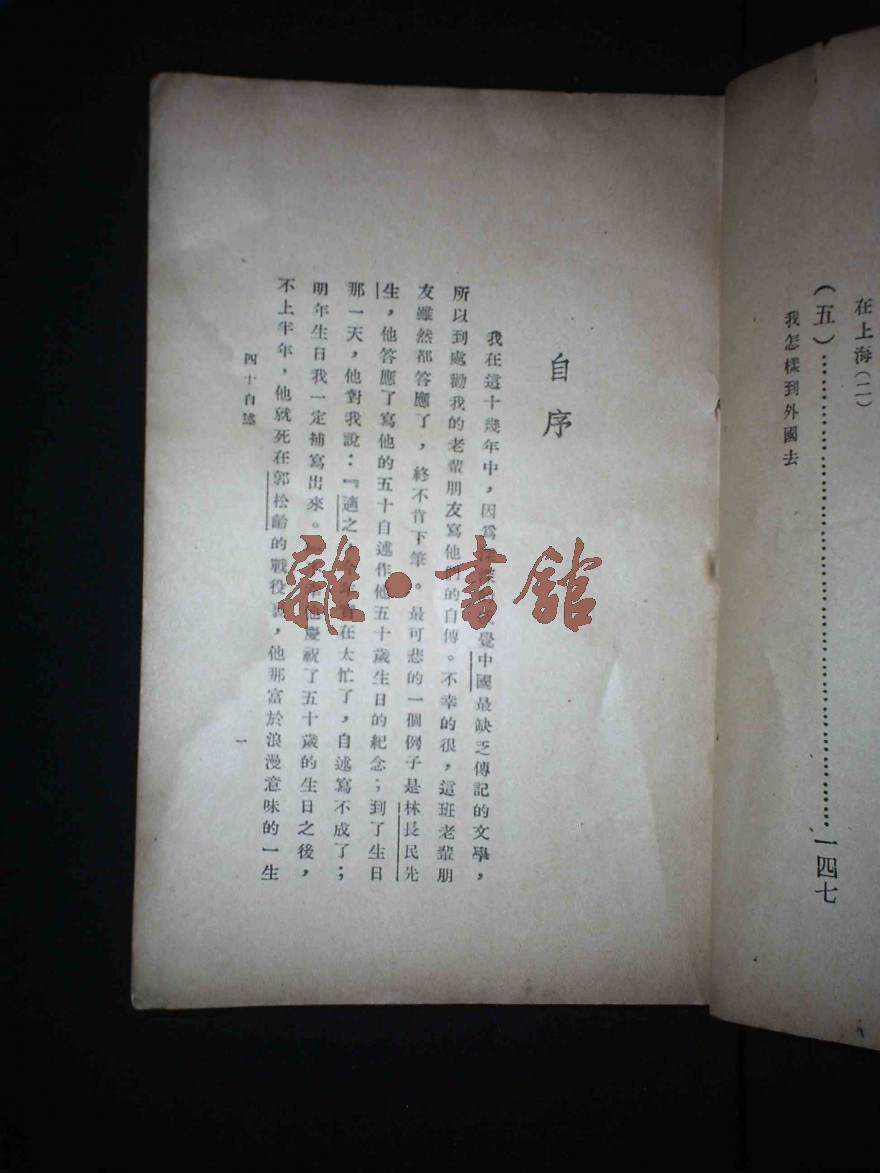 在上海(二)
(五)……………………………………一四七
我怎樣到外國去
自序
我在這十幾年中,因爲覺中國最缺乏傳記的文學,
所以到處勸我的老輩朋友寫他們的自傳。不幸的很,這班老輩朋
友雖然都答應了,終不肯下筆。最可悲的一個例子是林長民先
生,他答應了寫他的五十自述作他五十歲生日的紀念;到了生日
那一天,他對我說:『適之,今年實在太忙了,自述寫不成了;
明年生日我一定補寫出來。他慶祝了五十歲的生日之後,
不上半年,他就死在郭松齡的戰役裏,他那富於浪漫意味的一生
四十自述
一
雜·書館